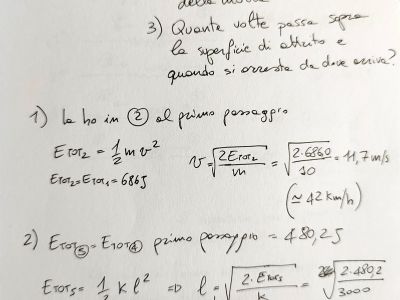 della molla
3) Quante volte passa sopra
la superficie di attrito e
quando si arresta da dove arriva?
1) la ho in ② al primo passaggio
ETOT2 = 1/2 m v² v = √(2ETOT2/m) = √(2·6860/10) = 11,7 m/s
ETOT2 = ETOT1 = 686J
(≃ 42 km/h)
2) ETOT⑤ = ETOT④ primo passaggio = 480,2J
ETOT5 = 1/2 k l² => l = √(2·ETOT5/k) = √(2·480,2/3000)